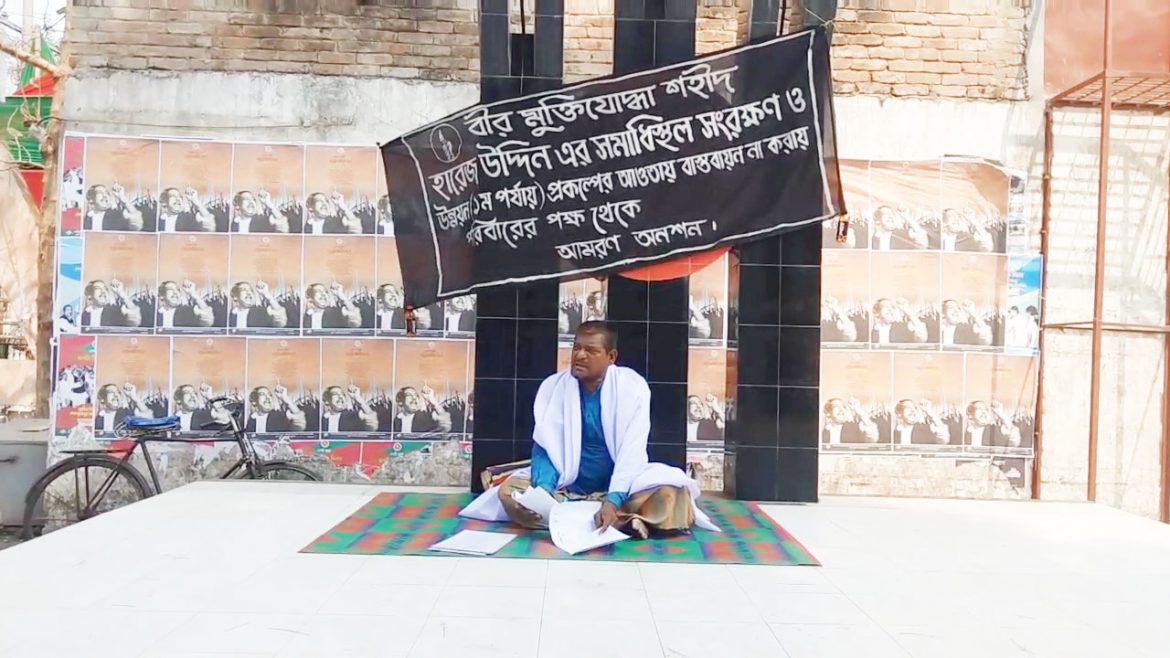 বীর মুক্তিযোদ্ধা শহীদ
হারেজ উদ্দিন এর সমাধিস্থল সংরক্ষণ ও
উন্নয়ন (১ম পর্যায়) প্রকল্পের আওতায় বাস্তবায়ন না করায়
পরিবারের পক্ষ থেকে
আমরণ অনশন।